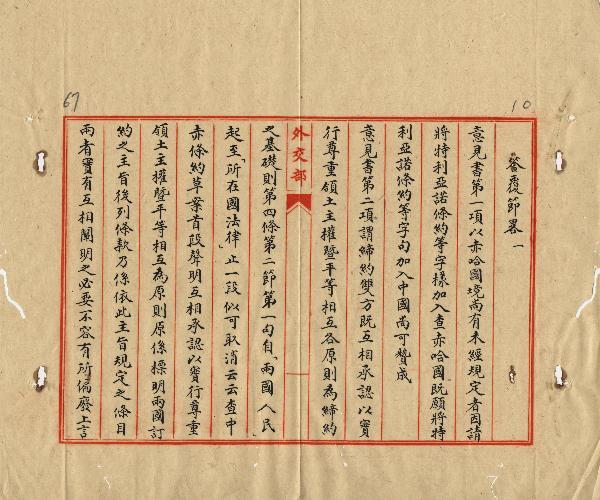 10
67
答覆節畧一
意見書第一項以赤哈國境尚有未經規定者因請
將特利亞諾條約等字樣加入查赤哈國既願將特
利亞諾條約等字句加入中國尚可贊成
意見書第二項謂締約雙方既互相承認以實
行尊重領土主權暨平等相互各原則為締約
外交部
之基礎則第四條第二節第一句自「兩國人民
起至「所在國法律」止一段似可取消云云查中
赤條約草案首段聲明互相承認以實行尊重
領土主權暨平等相互為原則原係標明兩國訂
約之主旨後列條款乃係依此主旨規定之條目
兩者實有互相闡明之必要不容有所偏廢上言